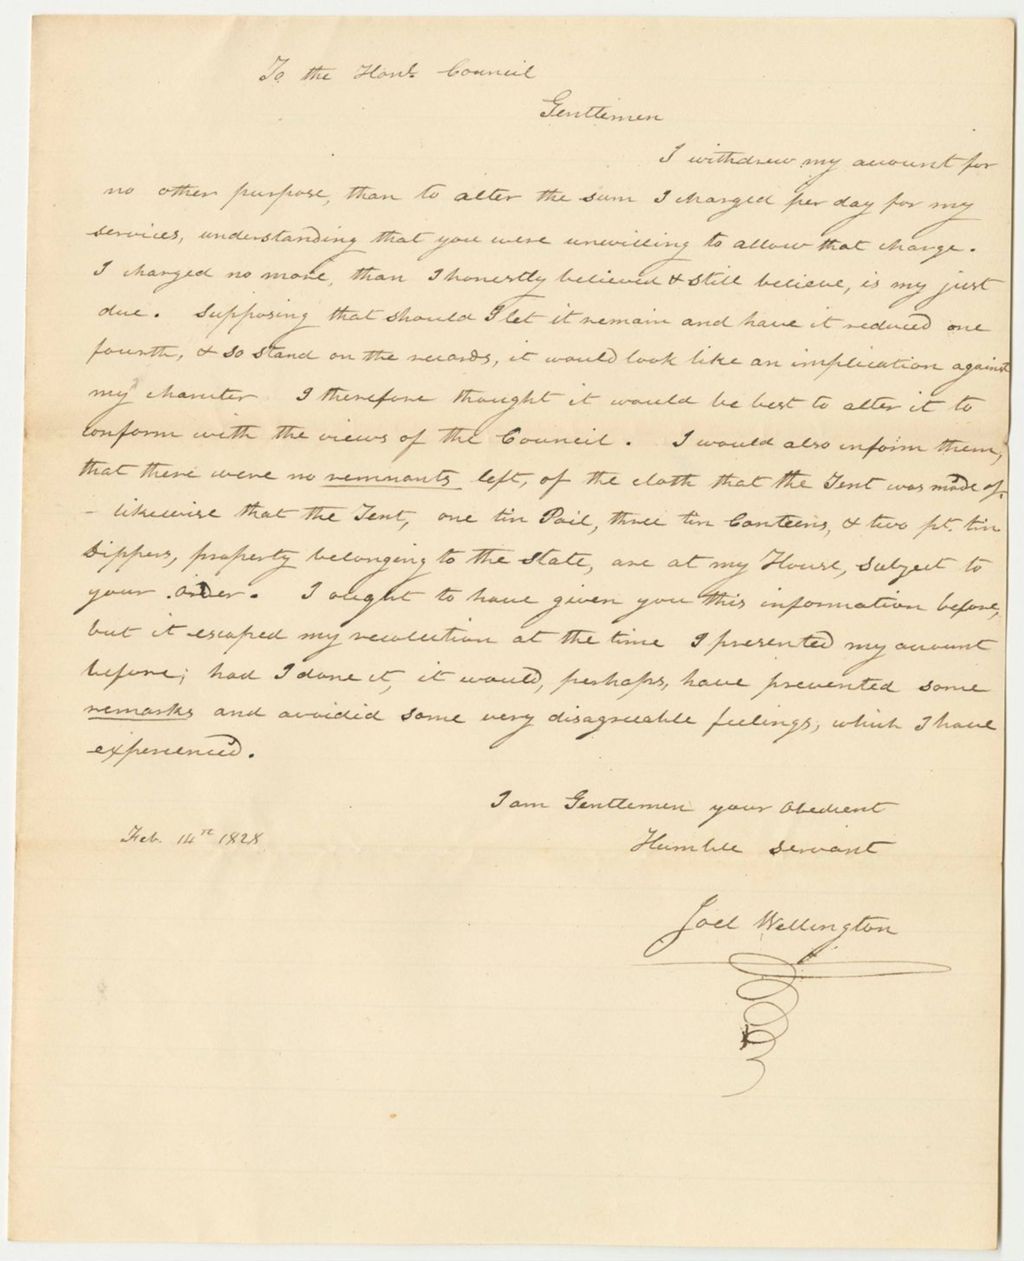 To the Honl. Council
Gentlemen
I withdrew my account for
no other purpose, than to alter the sum I charged per day for my
services, understanding that you were unwilling to allow that charge.
I charged no more, than I honestly believed & still believe, is my just
due. Supposing that should I let it remain and have it reduced one
fourth, & so stand on the records, it would look like an implication against
my charcter I therefore thought it would be best to alter it to
conform with the views of the Council. I would also inform them,
that there were no remnants left, of the cloth that the Tent was made of.
- likewise that the Tent, one tin Pail, three tin Canteens, & two pt. tin
Dippers, property belonging to the State, are at my House, subject to
your order. I ought to have given you this information before,
but it escaped my recolection at the time I presented my account
before; had I done it, it would, perhaps, have prevented some
remarks and avoided some very disagreeable feelings, which I have
experienced.
I am Gentlemen your obedient
Humble servant
Feb. 14th 1828
Joel Wellington